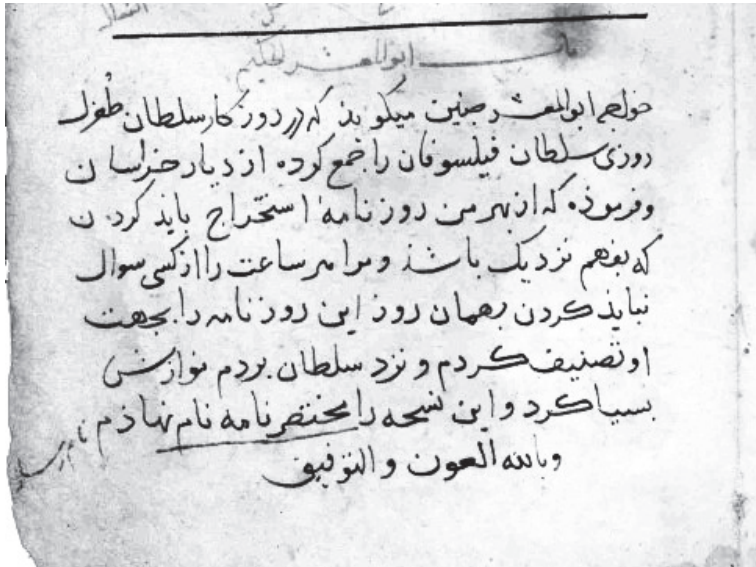 خواجه ابوالمعشر چنین میکوید که در روزکار سلطان طغرل
روزی سلطان فیلسوفان را جمع کرده از دیار خراسان
و فرموذه که از بهر من روزنامهٔ استخراج بایذ کردن
که بفهم نزدیک باشذ و مرا هر ساعت را از کسی سوال
نبایذ کردن بهمان روز این روزنامه را بجهت
او تصنیف کردم و نزد سلطان بردم نوازش
بسیا کرد و این نسخه را مختصرنامه نام نهاذم
و بالله العون والتوفیق